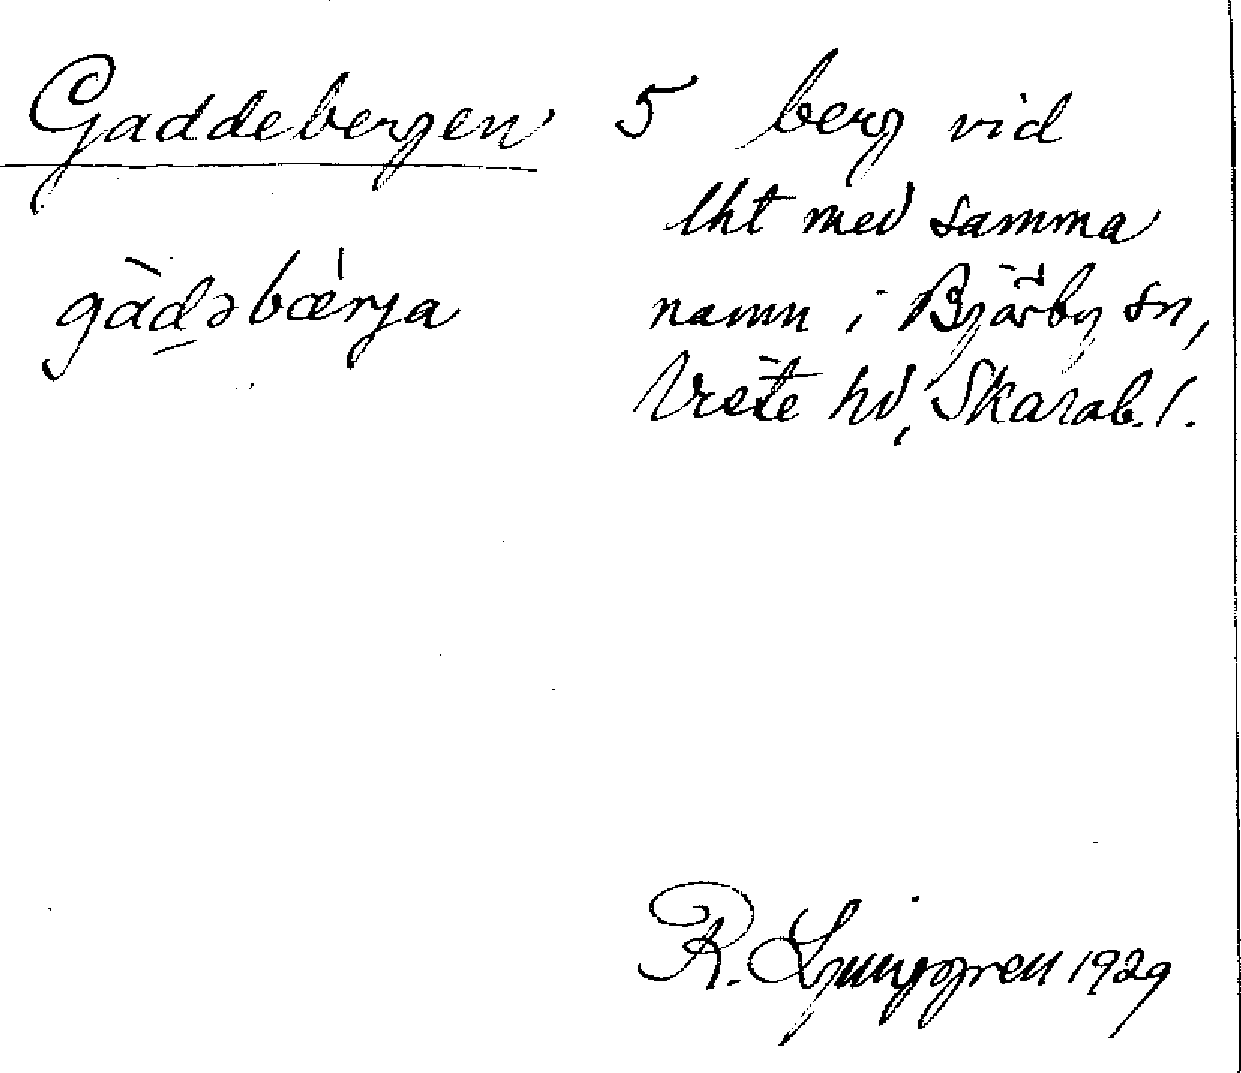 Gaddebergen 5 berg vid
lht med samma
gàdəbǽrja
namn i Bjärby sn,
Viste hd, Skarab. l.
R. Ljunggren 1929